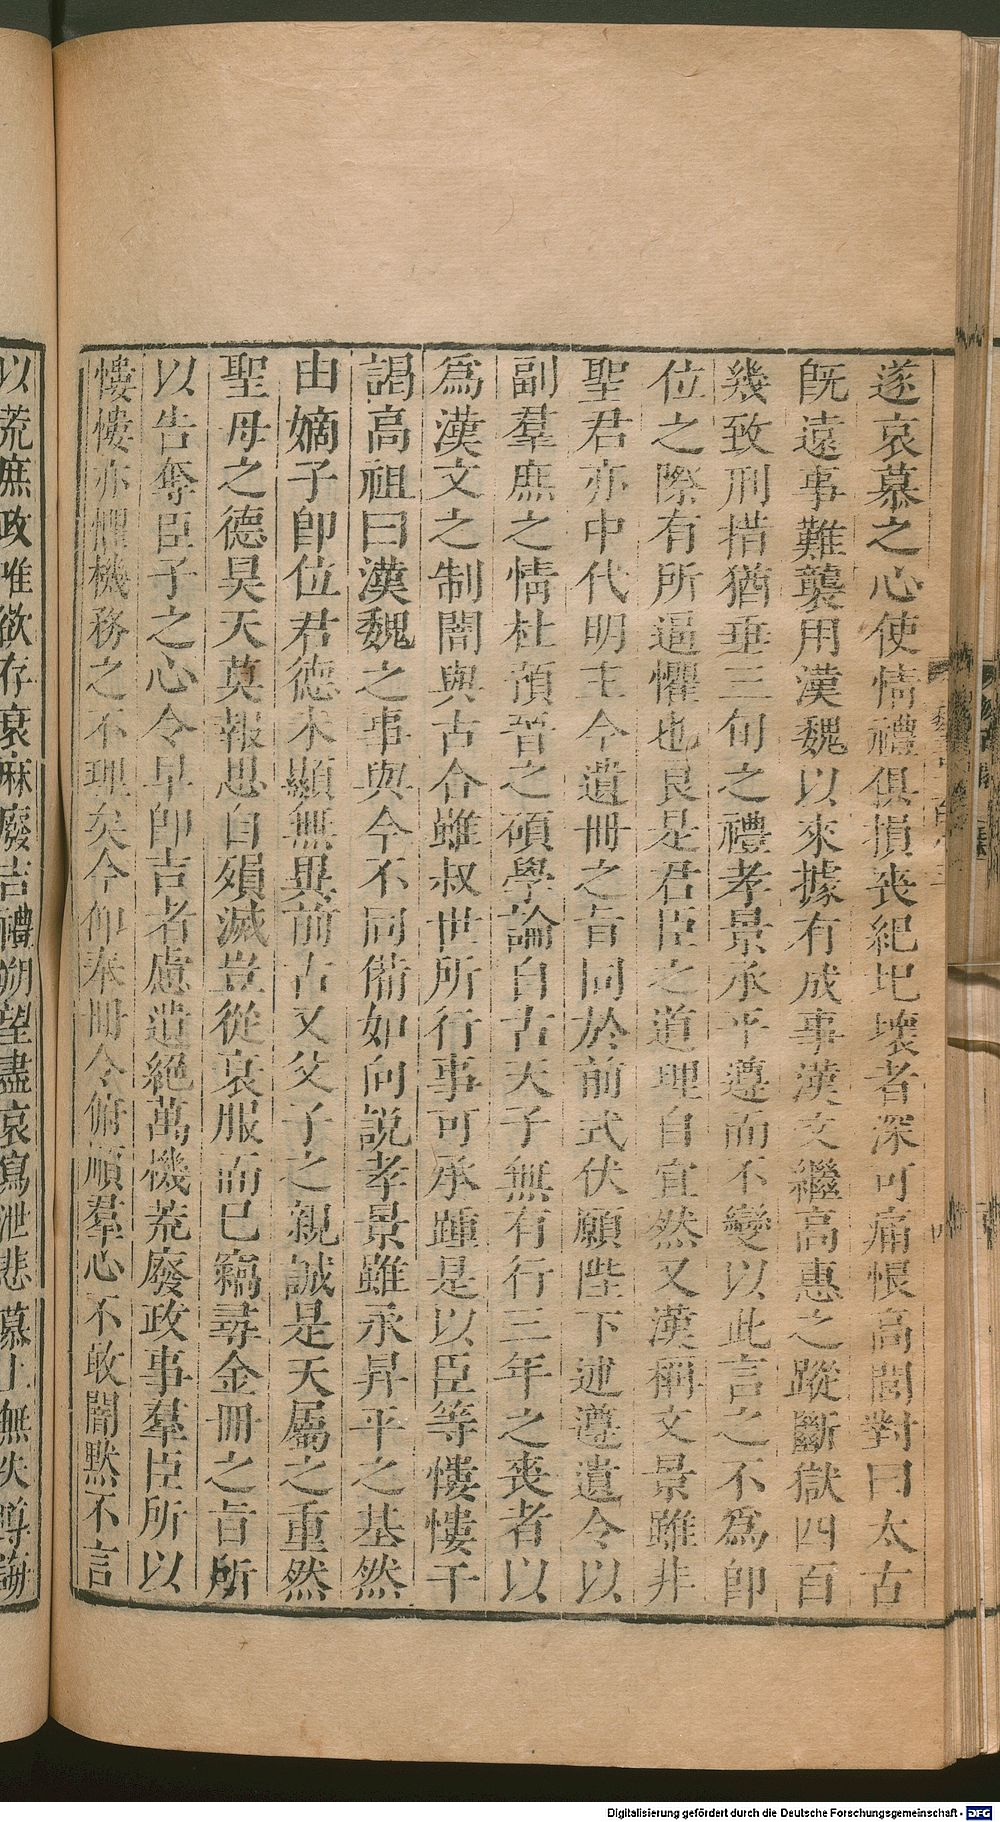 遂哀慕之心使情禮俱損喪紀圮壞者深可痛恨高閭對曰太古
既遠事難襲用漢魏以來據有成事漢文繼高惠之蹤斷獄四百
幾致刑措猶垂三旬之禮孝景承平遵而不變以此言之不為即
位之際有所逼懼也良是君臣之道理自宜然又漢稱文景雖非
聖君亦中代明主今遺冊之旨同於前式伏願陛下述遵遺令以
副羣庶之情杜預晉之碩學論自古天子無有行三年之喪者以
為漢文之制闇與古合雖叔世所行事可承踵是以臣等慺慺干
謁高祖曰漢魏之事與今不同備如向說孝景雖承昇平之基然
由嫡子即位君德未顯無異前古又父子之親誠是天屬之重然
聖母之德昊天莫報思自殞滅豈從衰服而已竊尋金冊之旨所
以告奪臣子之心令早即吉者慮遺絕萬機荒廢政事羣臣所以
慺慺亦懼機務之不理矣今仰奉冊令俯順羣心不敢闇默不言
以荒庶政唯欲存衰麻廢吉禮朔望盡哀寫泄悲慕上無失導誨
Digitalisierung gefördert durch die Deutsche Forschungsgemeinschaft - DFG